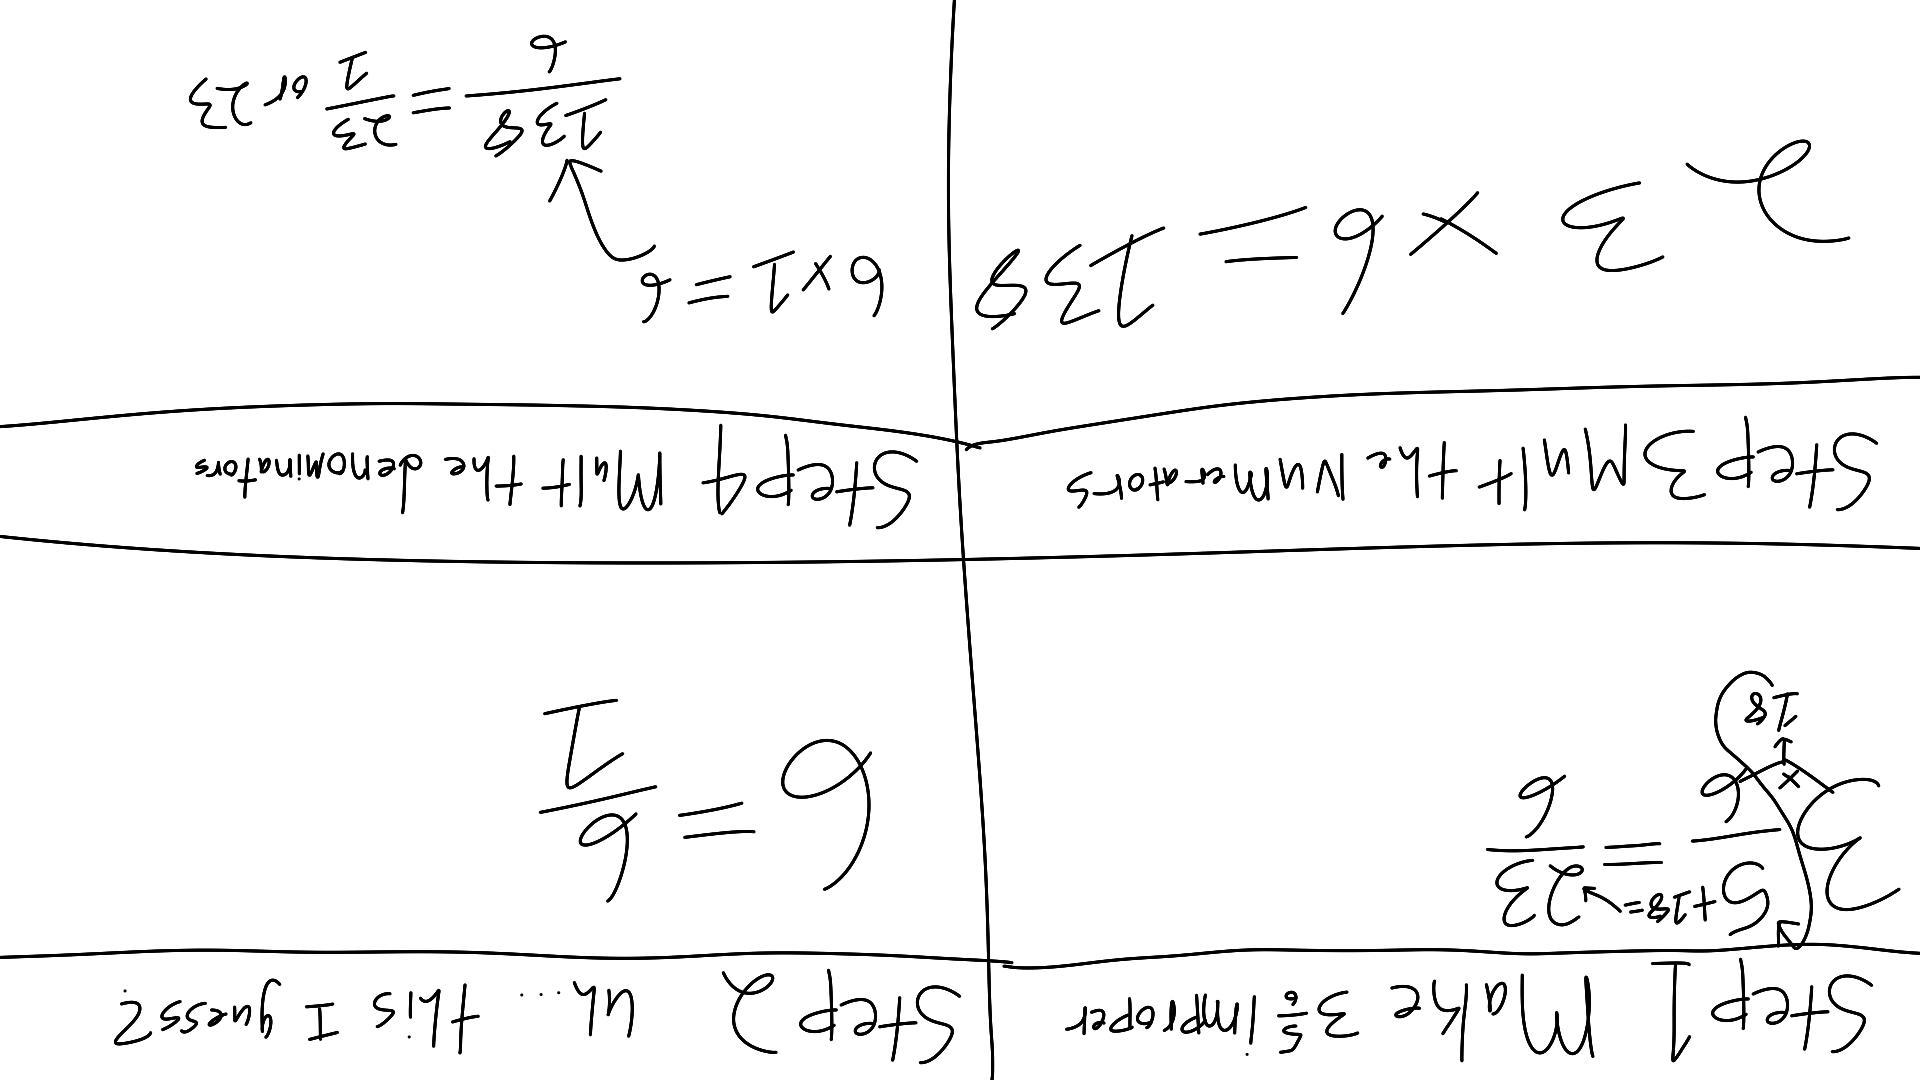 Step 1 Make 3 5/6 improper
3 5/6 +18= 23/6
x
18
Step 2 uh... this I guess?
6 = 6/1
Step 3 Mult the Numerators
23 x 6 = 138
Step 4 Mult the denominators
6 x 1 = 6
138/6 = 23/1 or 23